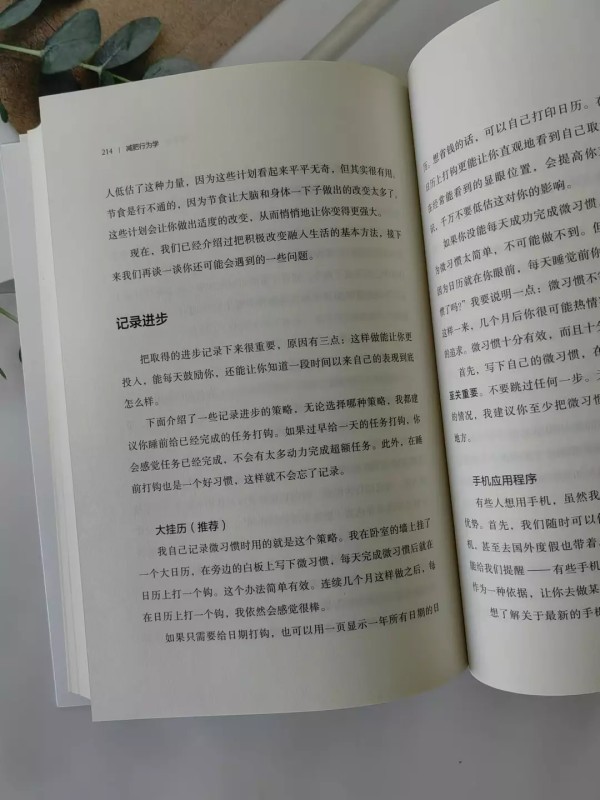 214 | 减肥行为学
人低估了这种力量，因为这些计划看起来平平无奇，但其实很有用。
节食是行不通的，因为节食让大脑和身体一下子做出的改变太多了，
这些计划会让你做出适度的改变，从而悄悄地让你变得更强大。
现在，我们已经介绍过把积极改变融入生活的基本方法，接下
来我们再谈一谈你还可能会遇到的一些问题。
记录进步
把取得的进步记录下来很重要，原因有三点：这样做能让你更
投入，能每天鼓励你，还能让你知道一段时间以来自己的表现到底
怎么样。
下面介绍了一些记录进步的策略，无论选择哪种策略，我都建
议你睡前给已经完成的任务打钩。如果过早给一天的任务打钩，你
会感觉任务已经完成，不会有太多动力完成超额任务。此外，在睡
前打钩也是一个好习惯，这样就不会忘了记录。
大挂历（推荐）
我自己记录微习惯时用的就是这个策略。我在卧室的墙上挂了
一个大日历，在旁边的白板上写下微习惯，每天完成微习惯后就在
日历上打一个钩。这个办法简单有效。连续几个月这样做之后，每
在日历上打一个钩，我依然会感觉很棒。
如果只需要给日期打钩，也可以用一页显示一年所有日期的日
历。想省钱的话，可以自己打印日历。
日历上打钩更能让你直观地看到自己取
你经常能看到的显眼位置，会提高你
说，千万不要低估这对你的影响。
如果你没能每天成功完成微习惯
为微习惯太简单，不可能做不到。但
因为日历就在你眼前，每天睡觉前你
惯了吗？”我要说明一点：微习惯不
这样一来，几个月后你很可能热情
的追求。微习惯十分有效，而且十
首先，写下自己的微习惯，在
至关重要。不要跳过任何一步。
的情况，我建议你至少把微习惯
地方。
手机应用程序
有些人想用手机，虽然我
优势。首先，我们随时可以
机，甚至去国外度假也带着
能给我们提醒——有些手机
作为一种依据，让你去做某
想了解关于最新的手机